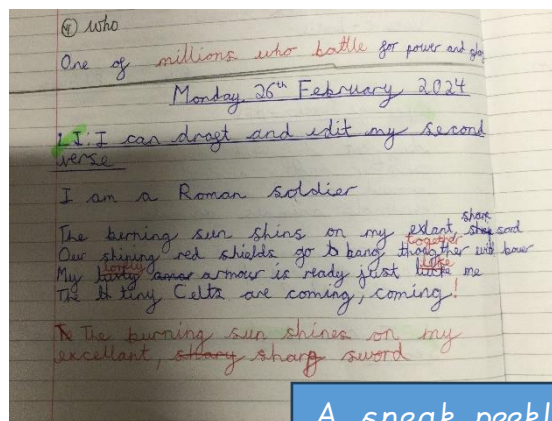 ④ who
One of millions who battle for power and glo
Monday 26th February 2024
LI: I can dragt and edit my second
verse
I am a Roman soldier
sharp
The burning sun shins on my exlant, sord
together
Our shining red shields go bang thoughther with bawer
lovely like
My armour is ready just me
The tiny Celts are coming, coming!
The burning sun shines on my
excellant, sharp sword
A sneak peek!